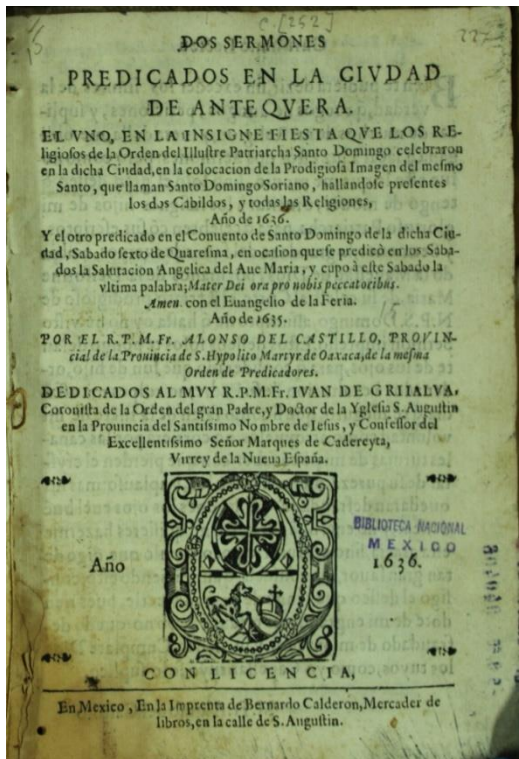 C. [252]
227
DOS SERMONES
PREDICADOS EN LA CIVDAD
DE ANTEQVERA.
EL VNO, EN LA INSIGNE FIESTA QVE LOS RE-
ligiosos de la Orden del Illustre Patriarcha Santo Domingo celebraron
en la dicha Ciudad, en la colocacion de la Prodigiosa Imagen del mesmo
Santo, que llaman Santo Domingo Soriano, hallandose presentes
los dos Cabildos, y todas las Religiones,
Año de 1636.
Y el otro predicado en el Conuento de Santo Domingo de la dicha Ciu-
dad, Sabado sexto de Quaresma, en ocasion que se predicò en los Saba-
dos la Salutacion Angelica del Aue Maria, y cupo à este Sabado la
vltima palabra; Mater Dei ora pro nobis peccatoribus.
Amen. con el Euangelio de la Feria.
Año de 1635.
POR EL R.P.M.Fr. ALONSO DEL CASTILLO, PROVIN-
cial de la Prouincia de S. Hypolito Martyr de Oaxaca, de la mesma
Orden de Predicadores.
DEDICADOS AL MVY R.P.M.Fr. IVAN DE GRIIALVA,
Coronista de la Orden del gran Padre, y Doctor de la Yglesia S. Augustin
en la Prouincia del Santissimo Nombre de Iesus, y Confessor del
Excellentissimo Señor Marques de Cadereyta,
Virrey de la Nueua España.
BIBLIOTECA NACIONAL
MEXICO
Año 1636.
CON LICENCIA,
En Mexico, En la Imprenta de Bernardo Calderon, Mercader de
libros, en la calle de S. Augustin.